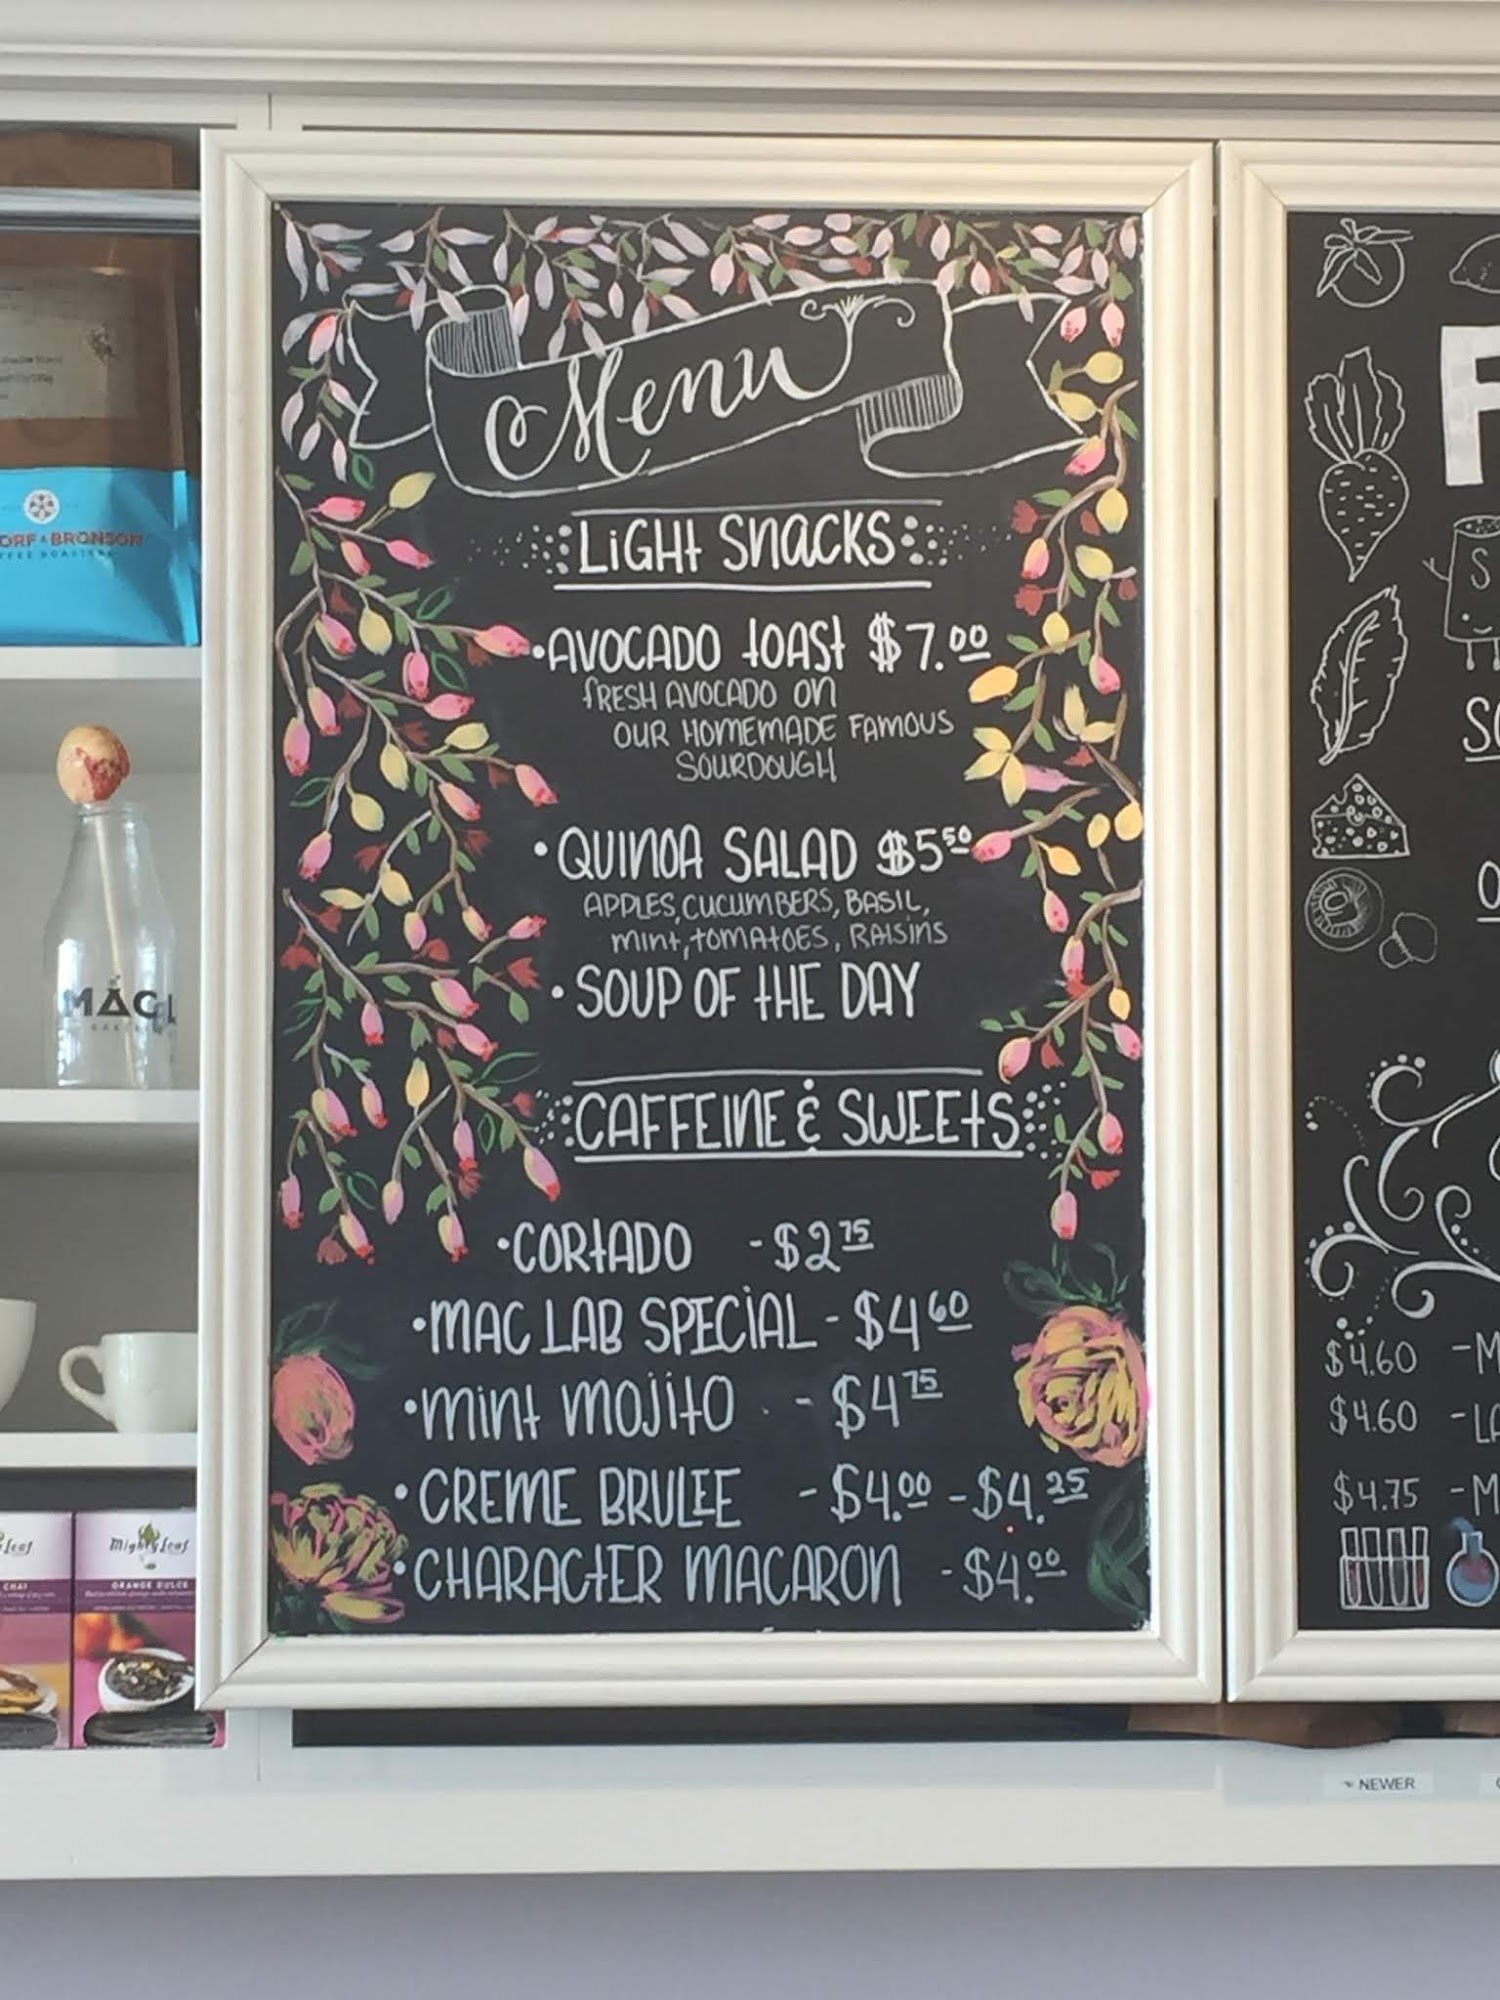 Menu
LiGHt SnACKS
•AVOCADO tOASt $7.00
fRESH AVOCADO On
OUR HOMEMADE FAMOUS
SOURDOUGH
•QUINOA SALAD $5 50
APPLES, CUCUMBERS, BASIL,
mint, tOMAtOES, RAISInS
•SOUP OF tHE DAY
CAFFEINE & SWEEtS
•CORtADO -$2 75
•MAC LAB SPECiAL - $4 60
•mint mOJitO - $4 75
•CREME BRULEE - $4.00 - $4.25
•CHARACtER MACAROn - $4.00
ORF & BRONSON
MAC L
Mighty Leaf
ORANGE DULCE
CHAI
F
S
$4.60 -M
$4.60 -LA
$4.75 -M
NEWER